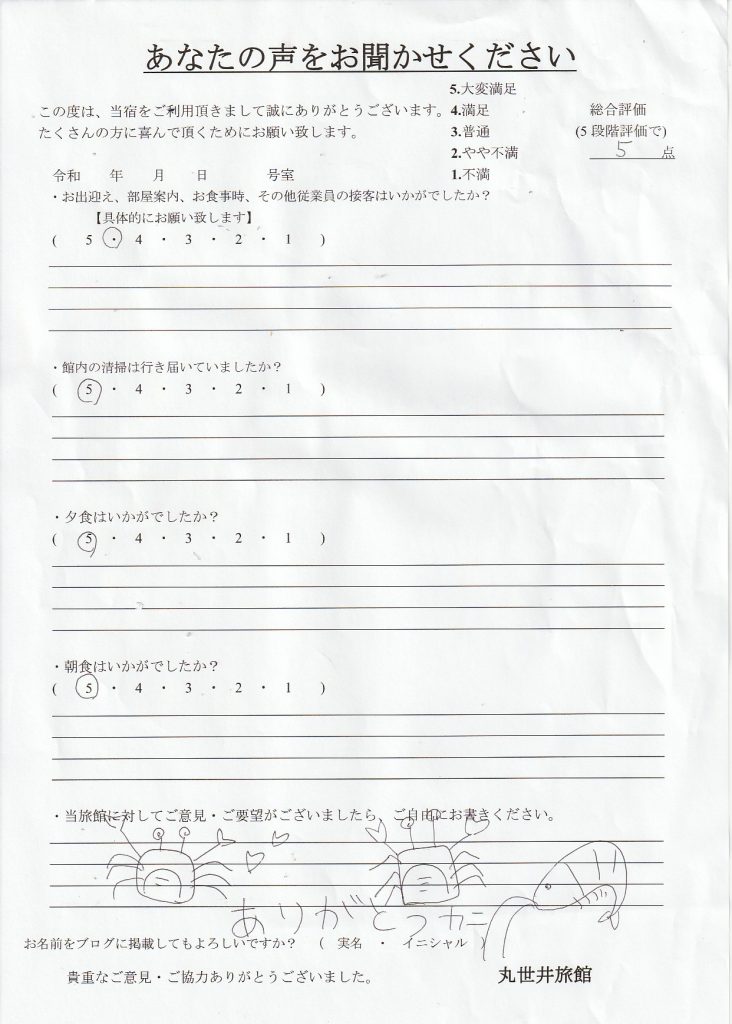 あなたの声をお聞かせください
この度は、当宿をご利用頂きまして誠にありがとうございます。
たくさんの方に喜んで頂くためにお願い致します。
5.大変満足
4.満足
3.普通
2.やや不満
1.不満
総合評価
(5 段階評価で)
5 点
令和 年 月 日 号室
・お出迎え、部屋案内、お食事時、その他従業員の接客はいかがでしたか？
【具体的にお願い致します】
( 5 ・ 4 ・ 3 ・ 2 ・ 1 )
・館内の清掃は行き届いていましたか？
( 5 ・ 4 ・ 3 ・ 2 ・ 1 )
・夕食はいかがでしたか？
( 5 ・ 4 ・ 3 ・ 2 ・ 1 )
・朝食はいかがでしたか？
( 5 ・ 4 ・ 3 ・ 2 ・ 1 )
・当旅館に対してご意見・ご要望がございましたら、ご自由にお書きください。
ありがとうカニ
お名前をブログに掲載してもよろしいですか？ ( 実名 ・ イニシャル )
貴重なご意見・ご協力ありがとうございました。
丸世井旅館